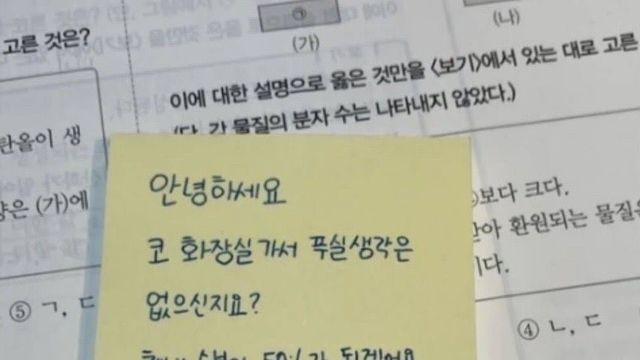 고른 것은?
(가)
(나)
이에 대한 설명으로 옳은 것만을 <보기>에서 있는 대로 고른
(단, 각 물질의 분자 수는 나타내지 않았다.)
탄올이 생
양은 (가)에
⑤ ㄱ, ㄷ
안녕하세요
코 화장실가서 푸실생각은
없으신지요?
보다 크다.
아 환원되는 물질은
이다.
④ ㄴ, ㄷ